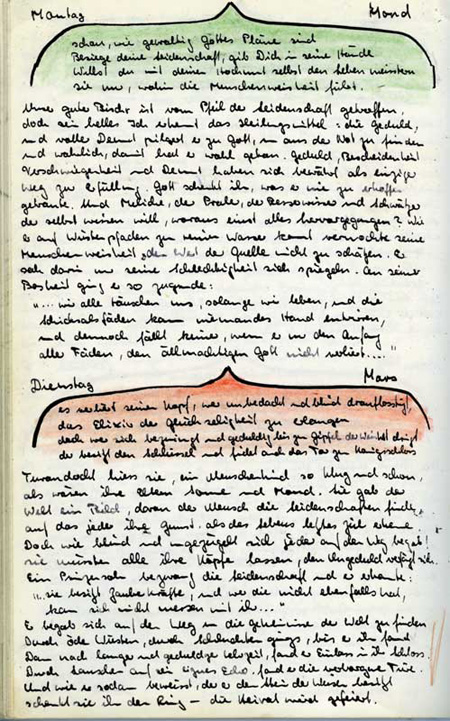 Montag Mond
schau, wie gewaltig Gottes Pläne sind
Besiege deine Leidenschaft, gib Dich in seine Hände
Willst du mit deinem Hochmut selbst den Leben meistern
sie nur, wohin die Menschenweisheit führt.
Unser gute Bischr ist vom Pfeil der Leidenschaft getroffen,
doch sein helles Ich erkennt das Heilungsmittel: die Geduld,
und voller Demut pilgert er zu Gott, um aus der Not zu finden
und wahrlich, damit hat er wohl getan. Geduld, Bescheidenheit
Verschwiegenheit und Demut haben sich bewährt als einzige
Weg zur Erfüllung. Gott schenkt ihm, was er nie zu erhoffen
gebraute. Und Meliche, der Prale, der Besserwisser und Schwätzer
der selbst wissen will, woraus einst alles hervorgegangen? Wie
er auf Wüstenpfaden zu reinem Wasser kommt vermochte seine
Menschenweisheit den Wert der Quelle nicht zu schätzen. Er
sah darin nur seine Schlechtigkeit sich spiegeln. An seiner
Bosheit ging er so zugrunde:
"... wir alle täuschen uns, solange wir leben, und die
Schicksalsfäden kann niemandes Hand entwirren,
und dennoch fällt keiner, wenn er nur den Anfang
aller Fäden, den Allmächtigen Gott nicht verliert...."
Dienstag Mars
es verliert seinen Kopf, wer unbedacht und blind drauflosstürzt,
das Elixir der Glückseligkeit zu erlangen
doch wer sich bezwingt und geduldig bis zum Gipfel der Weisheit dringt
der besitzt den Schlüssel und findet auch das Tor zum Königsschloss
Turandocht hiess sie, ein Menschenkind so klug und schön,
als wären ihre Eltern Sonne und Mond. Sie gab der
Welt ein Bild, daran der Mensch die Leidenschaften finde,
auf das jeder ihre Gunst als des Lebens letztes Ziel erkenne.
Doch wie blind und ungezügelt sich jeder auf den Weg begab!
sie mussten alle ihre Köpfe lassen, den Ungeduld verfolgt sich.
Ein Prinzensohn bezwang die Leidenschaft und er erkannte:
"...sie besitzt Zauberkräfte, und wer die nicht ebenfalls hat,
kann sich nicht messen mit ihr..."
Er begab sich auf den Weg um die Geheimnisse der Welt zu finden
Durch öde Wüsten, durch Schluchten gings, bis er ihn fand
Dann nach langer und geduldiger Lehrzeit, fand er Einlass in ihr Schloss.
Durch Lauschen auf sein eignes Echo fand er die verborgne Türe.
Und wie er sodann beweisst, dass er den Stein der Weisen besitzt
schenkt sie ihm den Ring – die Heirat wird gefeiert.